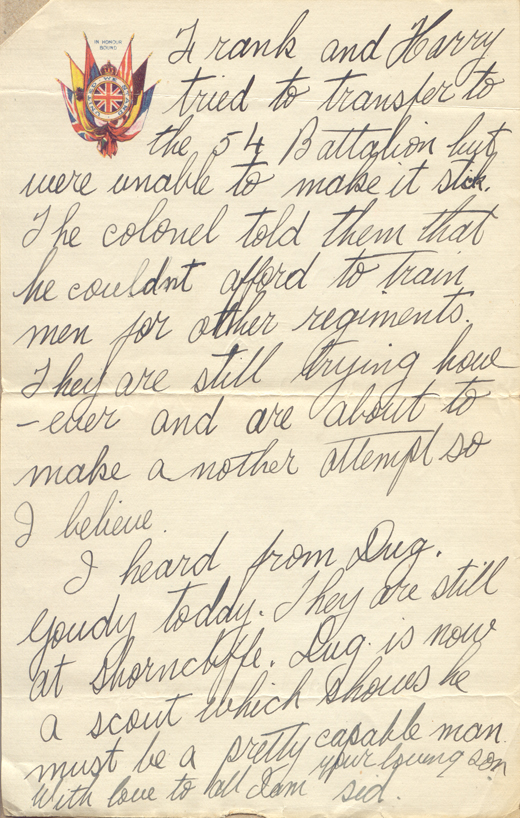 IN HONOUR
BOUND
Frank and Harry
tried to transfer to
the 54 Battalion but
were unable to make it stick.
The colonel told them that
he couldnt afford to train
men for other regiments.
They are still trying how
-ever and are about to
make a nother attempt so
I believe.
I heard from Dug.
Goudy today. They are still
at Shorncliffe. Dug. is now
a scout which shows he
must be a pretty capable man.
With love to all I am your loving son
sid.